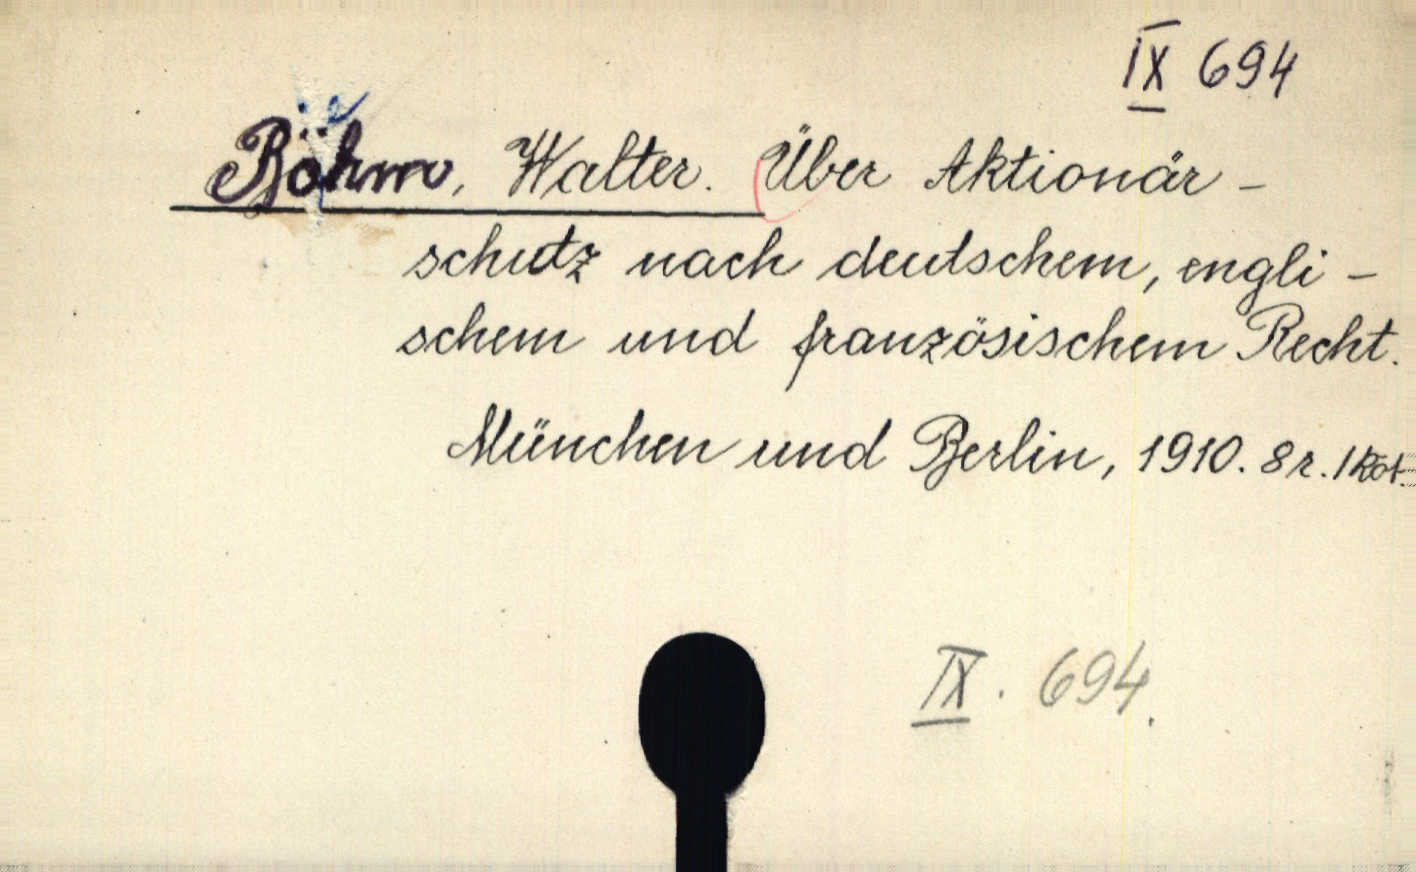 IX 694
Böhm, Walter. Über Aktionär-
schutz nach deutschem, engli-
schem und französischem Recht.
München und Berlin, 1910. 8r. 1 Köt.
IX. 694.